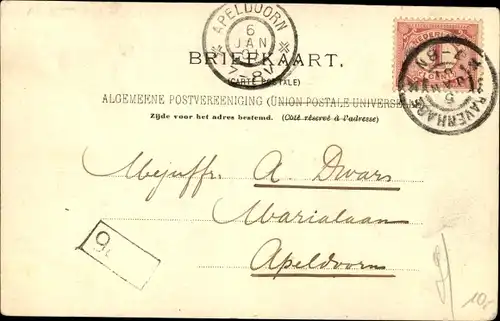 APELDOORN
6
JAN
7-8V
BRIEFKAART.
(CARTE POSTALE)
ALGEMEENE POSTVEREENIGING (UNION POSTALE UNIVERSELLE)
Zijde voor het adres bestemd. (Côté réservé à l'adresse)
NEDERLAND
Mejuffr. A. Dwars
Marialaan
Apeldoorn
10,-